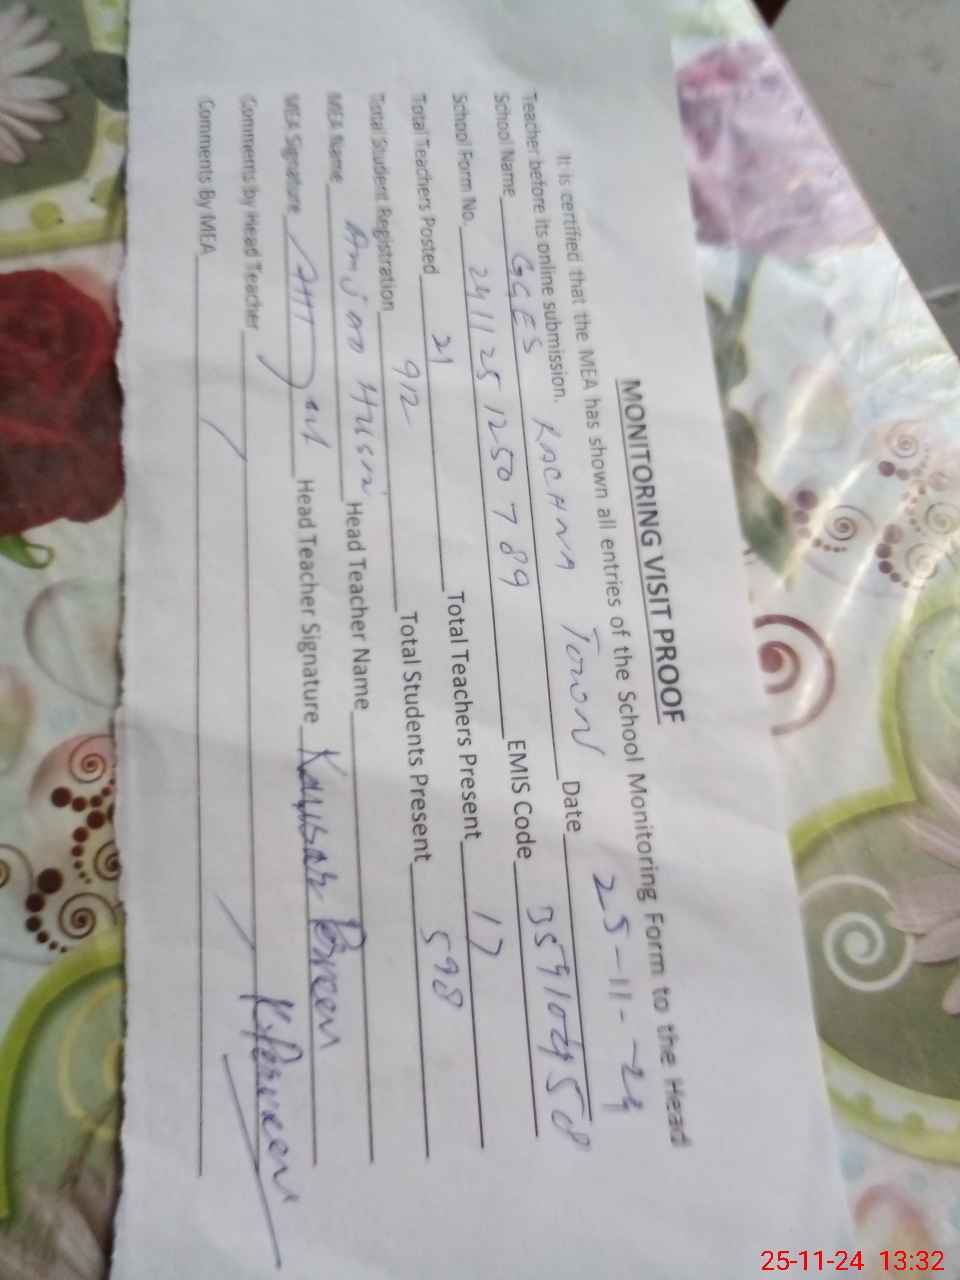 MONITORING VISIT PROOF
It is certified that the MEA has shown all entries of the School Monitoring Form to the Head
Teacher before its online submission.
School Name GGES RACHNA TOWN Date 25-11-24
School Form No. 241125 1250789 EMIS Code 35910458
Total Teachers Posted 21 Total Teachers Present 17
Total Student Registration 912 Total Students Present 598
MEA Name Head Teacher Name
MEA Signature Head Teacher Signature Kausar Parveen
Comments by Head Teacher K. Parveen
Comments By MEA
25-11-24 13:32